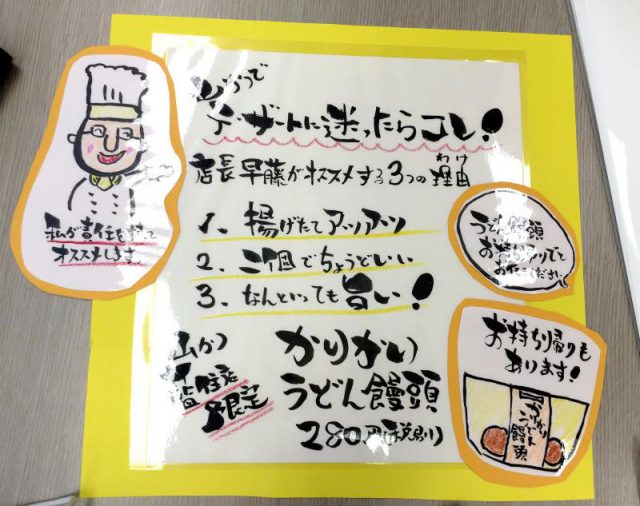 山かつで
デザートに迷ったらコレ!
店長早藤がオススメする3つの理由
わけ
1. 揚げたてアツアツ
2. 二個でちょうどいい
3. なんといっても旨い!
山かつ
限定
かりかい
うどん饅頭
280円(税別)
私が責任を持って
オススメします
うどん饅頭
お持ち帰りでと
お伝えください
お持ち帰りも
あります!
かりかり
うどん
饅頭